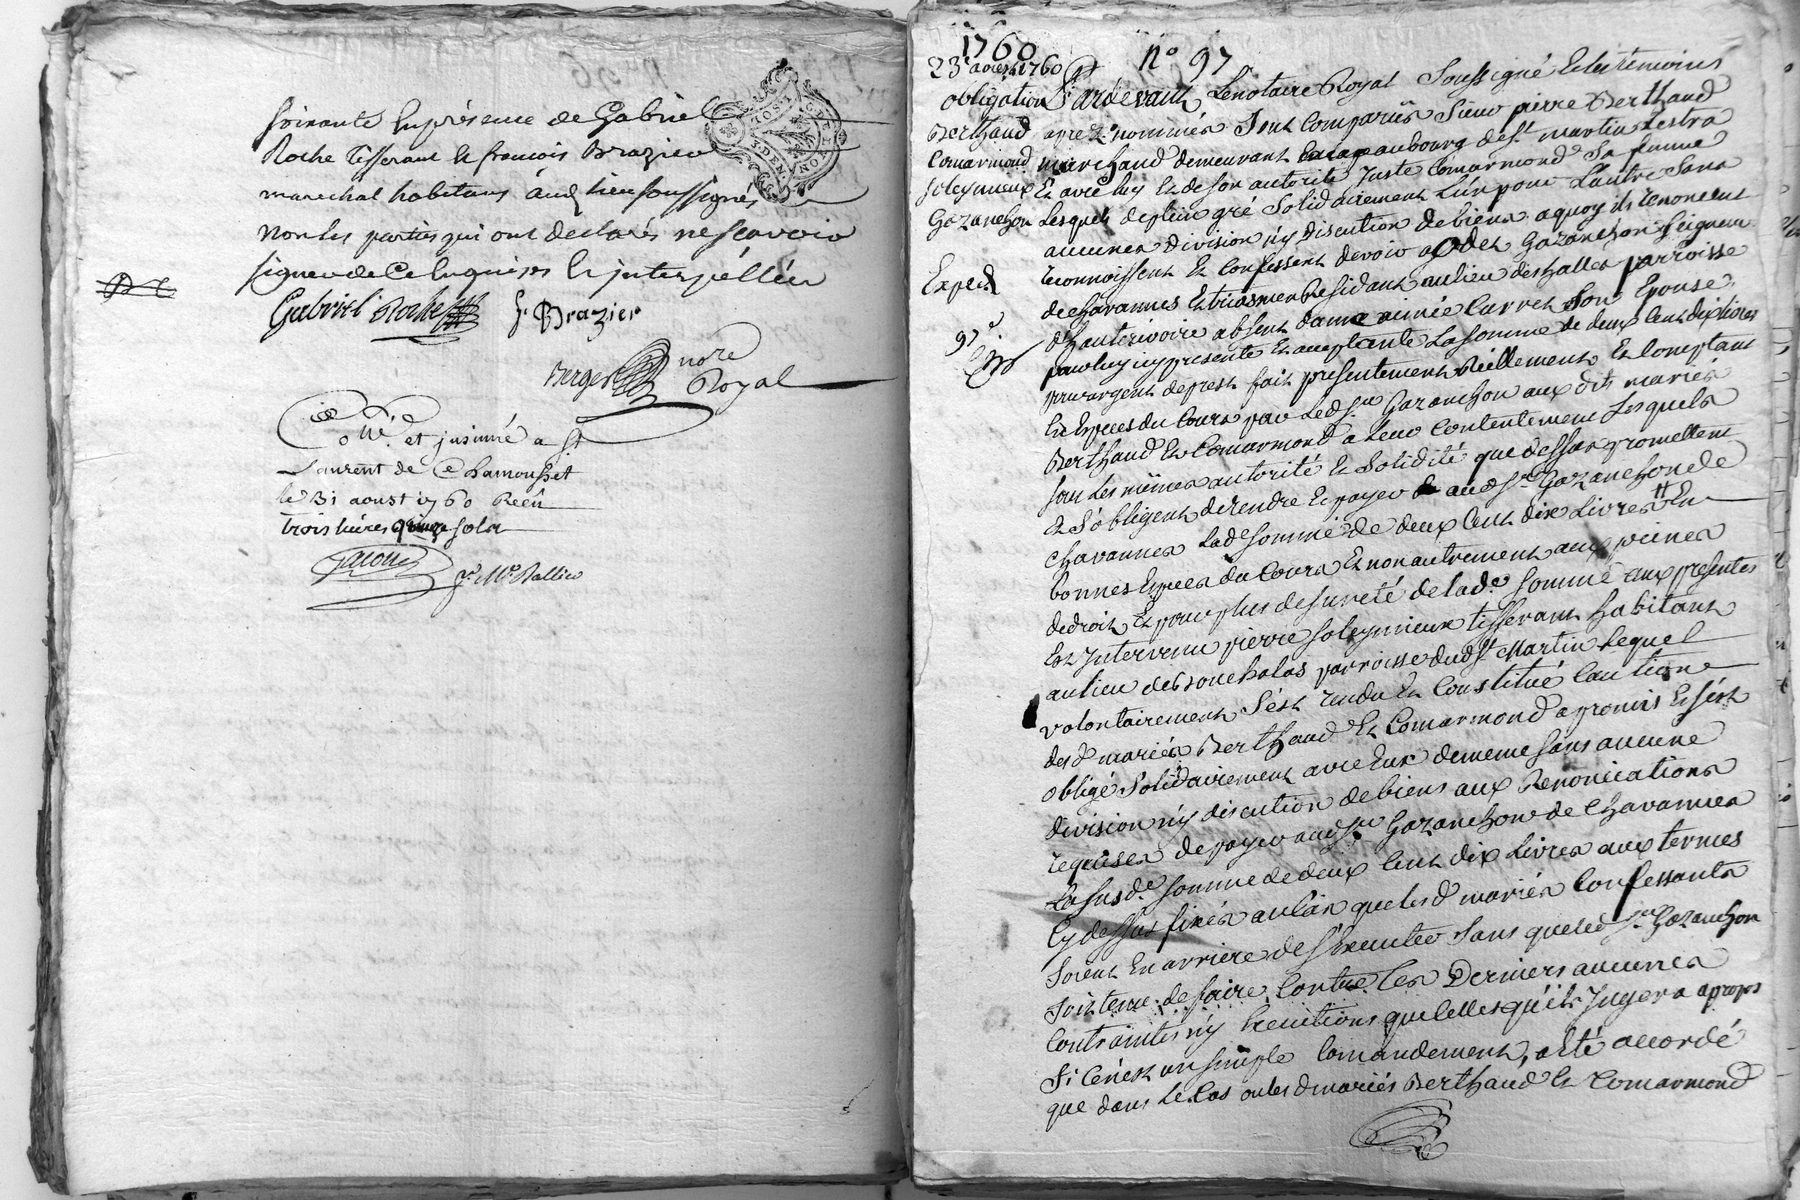 soixante En présence de Gabriel
Roche tisserant Et francois Brazier
marechal habitans aud lieu soussignés
non les parties qui ont declarés ne scavoir
signer de Ce Enquises Et interpellées
Gabriel Roche
f Brazier
Berger nore
Royal
Collé et insinué a St
Laurent de Chamousset
le 31 aoust 1760 Reçu
trois livres sols
1760
n° 97
23e aoust 1760
obligation
Berthaud
Comarmond
soleymieux
Gazanchon
Exped
97e
Pardevant Le notaire Royal Soussigné Et les temoins
apres nommés Sont Comparus Sieur pierre Berthaud
marchand demeurant au faubourg de St martin Lestra
Et avec luy Et de son autorité Juste Comarmond Sa femme
Lesquels de plein gré Solidairement L'un pour L'autre Sans
aucunes division n'y discution de biens a quoy ils renoncent
reconnoissent Et Confessent devoir a Gazanchon Seigneur
de chavannes Et residant au lieu des halles parroisse
d'hauterivoire absent dame aimée Carret Son Epouse
pour luy icy presente Et acceptante La somme de deux Cent dix livres
pour argent de prest fait presentement Réellement Et Comptant
En Especes du Cours par Led Sr Gazanchon aux dits mariés
Berthaud Et Comarmond a Leur Contentement Lesquels
sous Les mêmes autorité Et Solidité que dessus promettent
Et S'obligent de rendre Et payer aud Sr Gazanchon de
chavannes Lad somme de deux Cent dix Livres En
bonnes Especes du Cours Et non autrement aux peines
de droit, Et pour plus de sureté de lad.e somme aux presentes
Est Intervenu pierre soleymieux tisserant habitant
au lieu de parroisse dud St Martin Lequel
volontairement S'est rendu Et Constitué Caution
des d mariés Berthaud Et Comarmond a promis Et s'est
obligé Solidairement avec Eux de meme sans aucune
division n'y discution de biens aux Renonciations
requises de payer aud Sr Gazanchon de Chavannes
La susd.e somme de deux Cent dix Livres aux termes
Cy dessus fixés au Cas que les d mariés Confessants
Soient En arriere de s'Executer Sans que led Sr Gazanchon
Soit tenu de faire Contre Les Derniers aucunes
Contraintes n'y Executions que Celles qu'il Jugera apropos
Si Ce n'est un simple Comandement, a été accordé
que dans Le Cas ou les d mariés Berthaud Et Comarmond